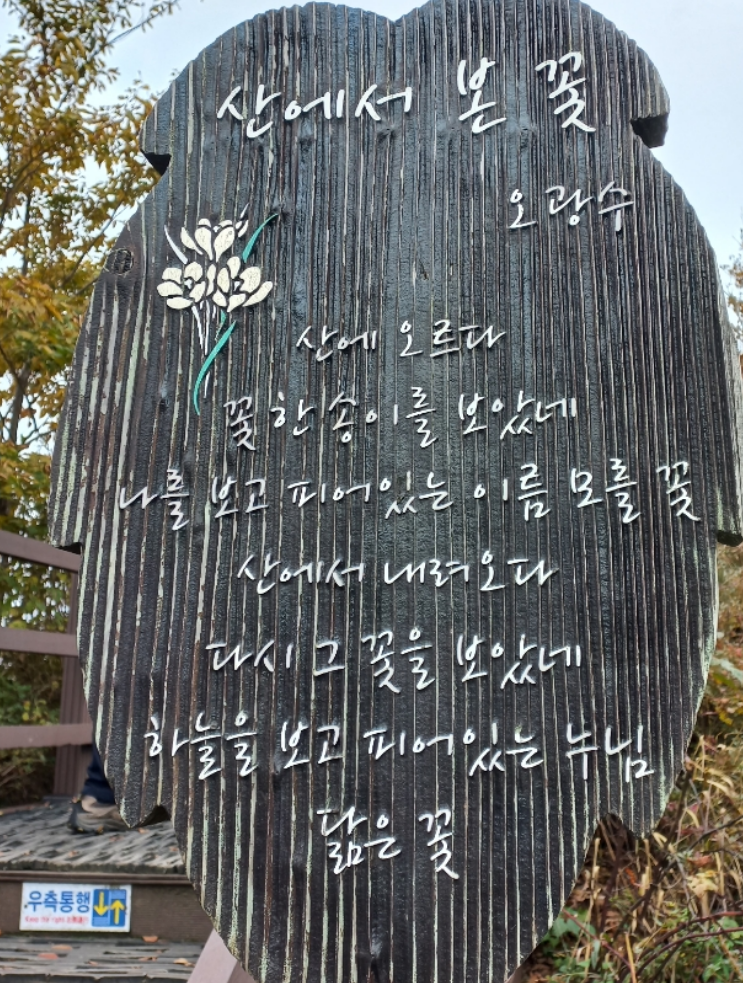 산에서 본 꽃
오광수
산에 오르다
꽃 한 송이를 보았네
나를 보고 피어있는 이름 모를 꽃
산에서 내려오다
다시 그 꽃을 보았네
하늘을 보고 피어있는 누님
닮은 꽃
우측통행
Keep the right